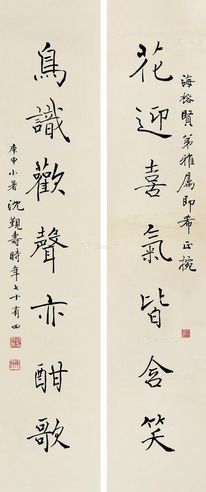 海榕賢弟雅屬即希正
花迎喜氣皆含笑
鳥識歡聲亦酣歌
庚申小暑沈覲壽時年七十有四